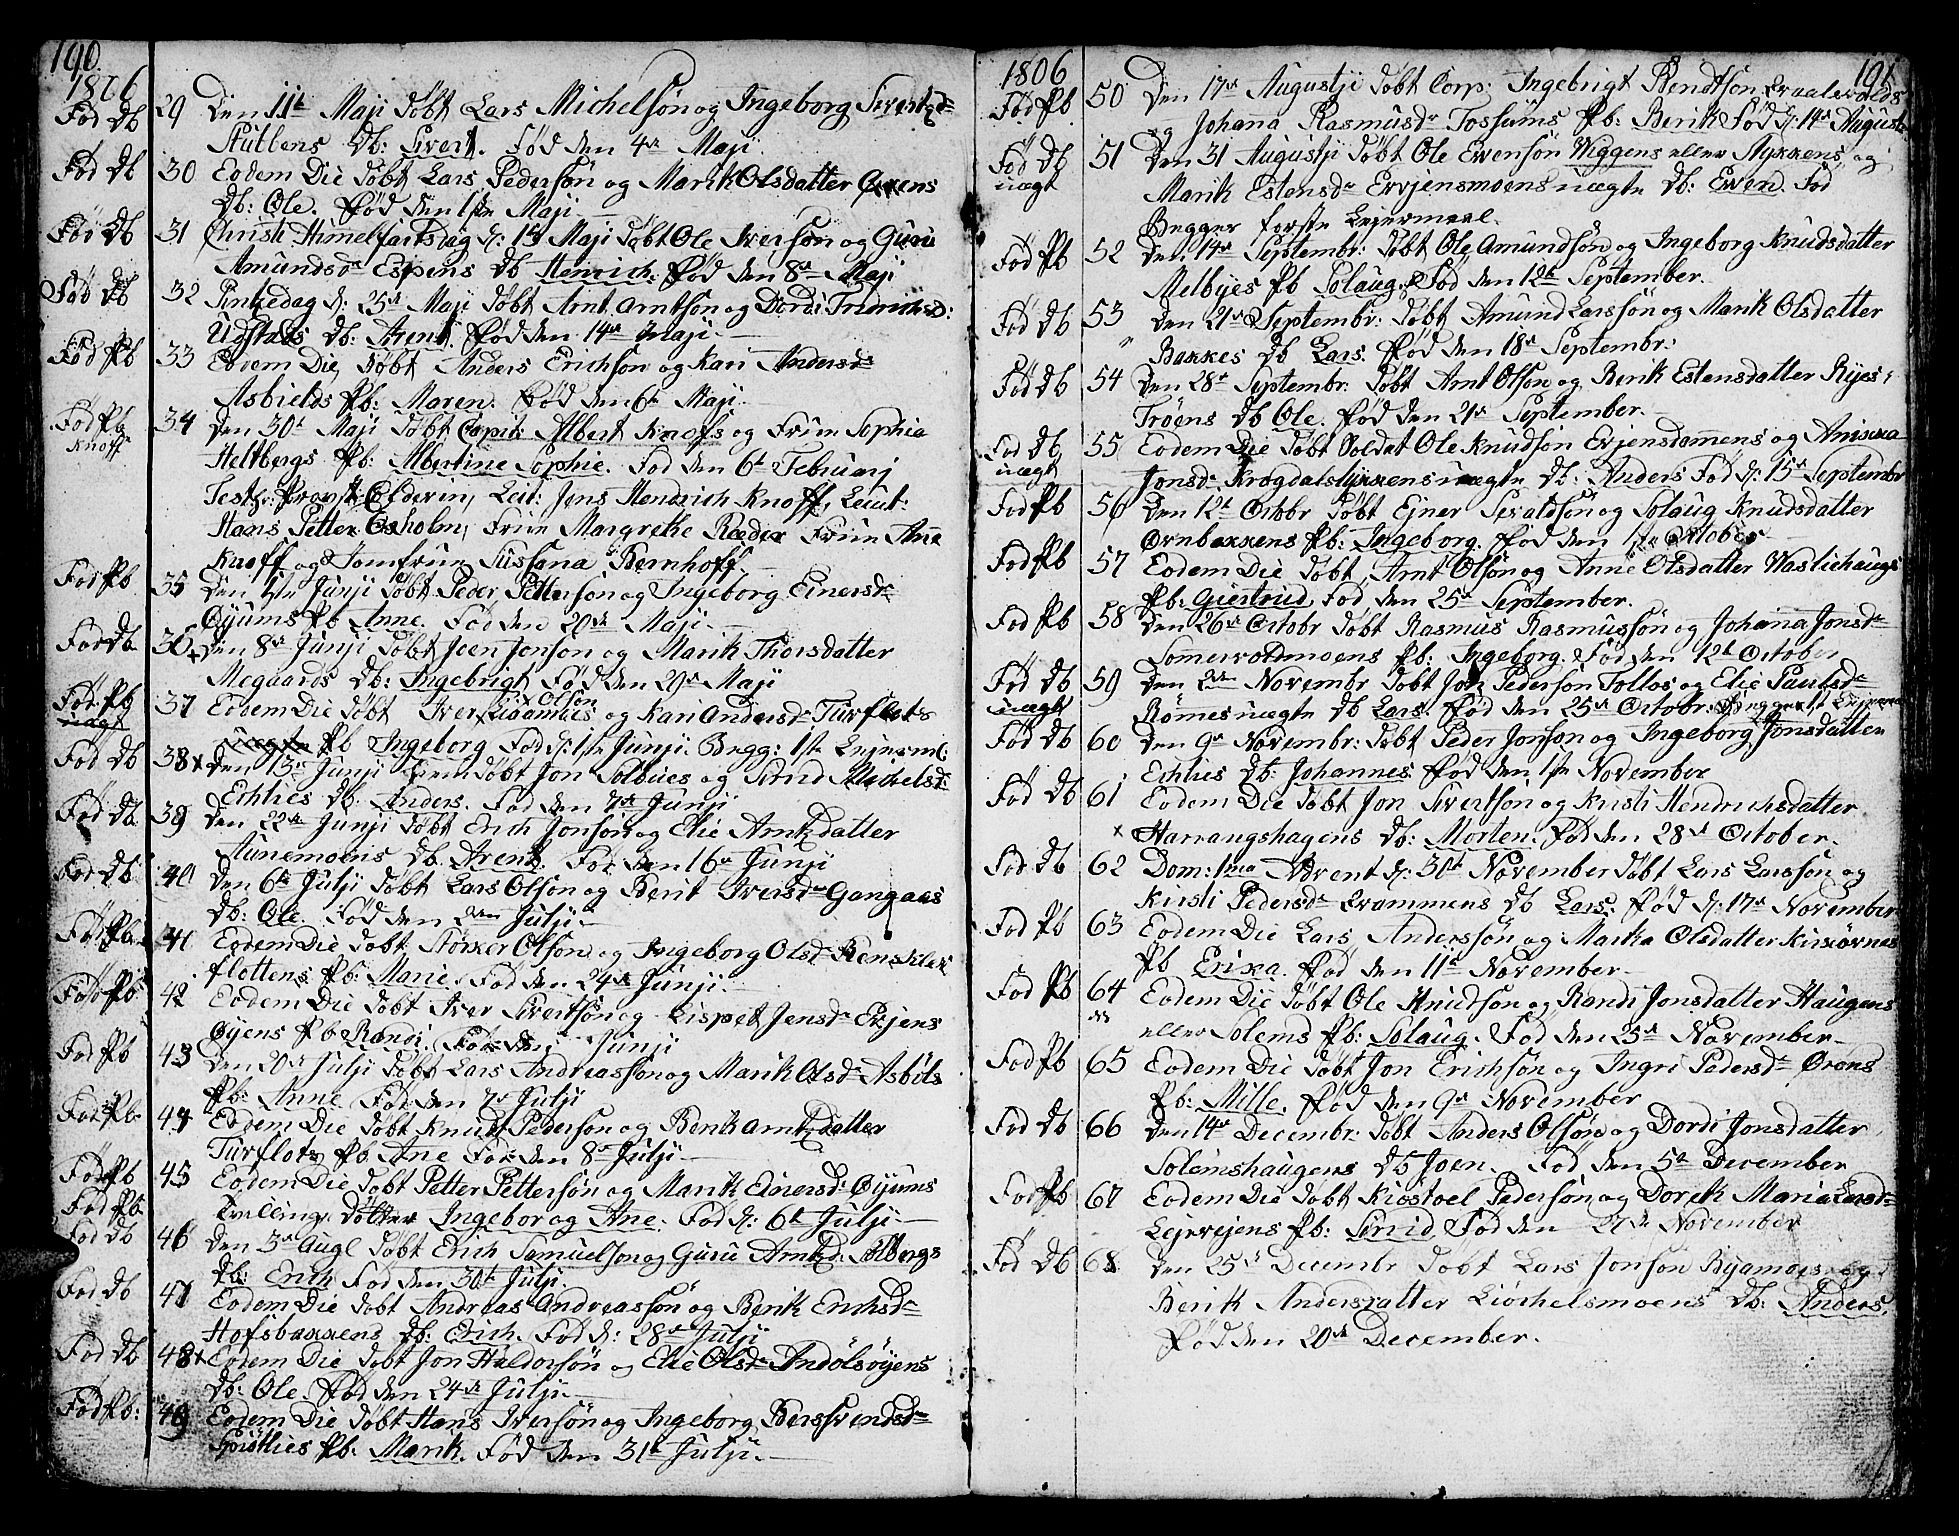 190.
1806
Fød Db 29 Den 11te Maji døbt Lars Michelsøn og Ingeborg Sivertsd:
Stullens Db: Sivert. Fød den 4de Maji
Fød Db 30 Eodem Die døbt Lars Pedersøn og Marit Olsdatter
Db: Ole. Fød den 1ste Maji
Fød Db 31 Christi Himmelfartsdag d: 15de Maji døbt Ole Iversøn og Guru
Amundsdr Espens Db Henrich. Fød den 8de Maji
Fød Db 32 Pintzedag d: 25de Maji døbt Arnt Arntsøn og Dordi
Udstads Db: Arent. Fød den 14de Maji
Fød Pb 33 Eodem Die døbt Anders Erichsøn og Kari Andersdr
Asbields Pb: Maren. Fød den 6te Maji.
Fød Pb Knoff 34 Den 30te Maji døbt Capit: Albert Knoffs og Frue Sophia
Heltbergs Pb: Albertine Sophie. Fød den 6te Februarj
Test: Provst Oldevin, Leit: Jens Hendrich Knoff, Leiut:
Hans Petter Oxholm, Frue Margrete Ræder Frue Ane
Knoff og Jomfrue Sussana Bernhoff.
Fød Pb 35 Den 1ste Junji døbt Peder Pettersøn og Ingeborg Einersdr
Øyums Pb Anne. Fød den 20de Maji
Fød Db 36 Den 8de Junji døbt Joen Jonsøn og Marit Thorsdatter
Megaards Db: Ingebrigt Fød den 29de Maji
Fød Pb uægt 37 Eodem Die døbt Iver Olsøn og Kari Andersdr Turflots
uægte Pb Ingeborg Fød d: 1ste Junji. Begg: 1ste Lejerml.
Fød Db 38 Den 13de Junji døbt Jon Solbues og Michelsdr
Echlies Db: Anders. Fød den 7de Junji
Fød Db 39 Den 22de Junji døbt Erich Jonsøn og Elie Arntzdatter
Aunemoens Db. Arent. Fød den 16de Junji
Fød Db 40 Den 6te Julji døbt Lars Olsøn og Berit Iversdr Gangaas
Db: Ole. Fød den 2den Julji.
Fød Pb 41 Eodem Die døbt Størker Olsøn og Ingeborg Olsdr
flottens Pb: Marie. Fød den 24de Junji
Fød Pb 42 Eodem Die døbt Iver Sivertsøn og Lispet Jensdr Evjens
Øyens Pb Randi. Fød den Junji
Fød Pb 43 Den 20de Julji døbt Lars Andreassøn og Marit Olsdr Asbiels
Pb: Anne Fød den 7de Julji
Fød Pb 44 Eodem Die døbt Knud Pedersøn og Berit Arntzdatter
Turflots Pb Ane Fød den 8de Julji
Fød Pb 45 Eodem Die døbt Petter Pettersøn og Marit Einersdr Øyums
Fød Pb Tvilling døtter Ingebor og Ane. Fød d: 6te Julji.
Fød Db 46 Den 3de Augl døbt Erich Samuelsøn og Guru Arntzd: Solbergs
Db: Erich Fød den 30te Julji.
Fød Db 47 Eodem Die døbt Andreas Andreassøn og Berit Erichsdr
Hofsbakkens Db: Erich. Fød d: 28de Julji
Fød Db 48 Eodem Die døbt Jon Haldorsøn og Elie Olsdr Indølsøyens
Db: Ole. Fød den 24de Julji.
Fød Pb: 49 Eodem Die døbt Hans Iversøn og Ingeborg Bersvendsdr
Giistlies Pb: Marit. Fød den 31te Julji.
191
1806
Fød Pb 50 Den 17de Augustji døbt Corp: Ingebrigt Bendtsøn
og Johanna Rasmusdr Tossums Pb: Berit Fød d: 14de August
Fød Db uægt 51 Den 31 Augustji døbt Ole Evensøn Viggens eller Stykkens og
Marit Estensdr Evjensmoens uægte Db: Even. Fød
Begges første Lejermaal.
Fød Pb 52 Den 14de Septembr: døbt Ole Amundsøn og Ingeborg Knudsdatter
Melbyes Pb Solaug. Fød den 12te September.
Fød Db 53 Den 21de Septembr: døbt Amund Larssøn og Marit Olsdatter
Bakkes Db Lars. Fød den 18de Septembr:
Fød Db 54 Den 28de Septembr: døbt Arnt Olsøn og Berit Estensdatter Ryes
Trøens Db Ole. Fød den 21de September.
Fød Db uægt 55 Eodem Die døbt Soldat Ole Knudsøn Evjensdammens og Anikka
Jonsdr Krogdalstykkens uægte Db: Anders Fød d: 15de Septembr
Fød Pb 56 Den 12te Octbr døbt Ejner Sevaldsøn og Solaug Knudsdatter
Ørnbakkens Pb: Ingeborg. Fød den 1ste October
Fød Pb 57 Eodem Die døbt Arnt Olsøn og Anne Olsdatter Vasliehaugs
Pb: Giertrud. Fød den 25de September.
Fød Pb 58 Den 26de Octobr døbt Rasmus Rasmussøn og Johanna Jonsdr
Sommervoldmoens Pb: Ingeborg. Fød den 12te October
Fød Db uægt 59 Den 2den Novembr døbt Jon Pedersøn Tollos og Elie Paulsdr
Rømmes uægte Db Lars. Fød den 25de Octobr.
Fød Db 60 Den 9de Novembr: døbt Peder Jonsøn og Ingeborg Jonsdatter
Echlies Db: Johannes. Fød den 1ste November
Fød Db 61 Eodem Die døbt Jon Sivertsøn og Kirsti Hendrichsdatter
Harrangshagens Db: Morten. Fød den 28de October.
Fød Db 62 Dom: 1ma Advent d: 30te November døbt Lars Larssøn og
Kirsti Pedersdr Qvammens Db Lars. Fød d: 17de November
Fød Pb 63 Eodem Die Lars Anderssøn og Marka Olsdatter
Pb Erixa. Fød den 11te November
Fød Pb 64 Eodem Die døbt Ole Knudsøn og Randi Jonsdatter Haugens
eller Solems Pb: Solaug. Fød den 25de November
Fød Pb 65 Eodem Die døbt Jon Erichsøn og Ingri Pedersdr Ørens
Pb: Mille. Fød den 9de November
Fød Db 66 Den 14de Decembr: døbt Anders Olsøn og Dordi Jonsdatter
Solemshaugens Db Joen. Fød den 5te December
Fød Pb 67 Eodem Die døbt Kiøstoel Pedersøn og Doret Maria Larsdr
Lejrvejens Pb: Sirid. Fød den 27de November
Fød Db 68 Den 25de Decembr døbt Lars Jonsøn Ryamoes og
Berit Andersdatter Liøchelsmoens Db: Anders.
Fød den 20de December.